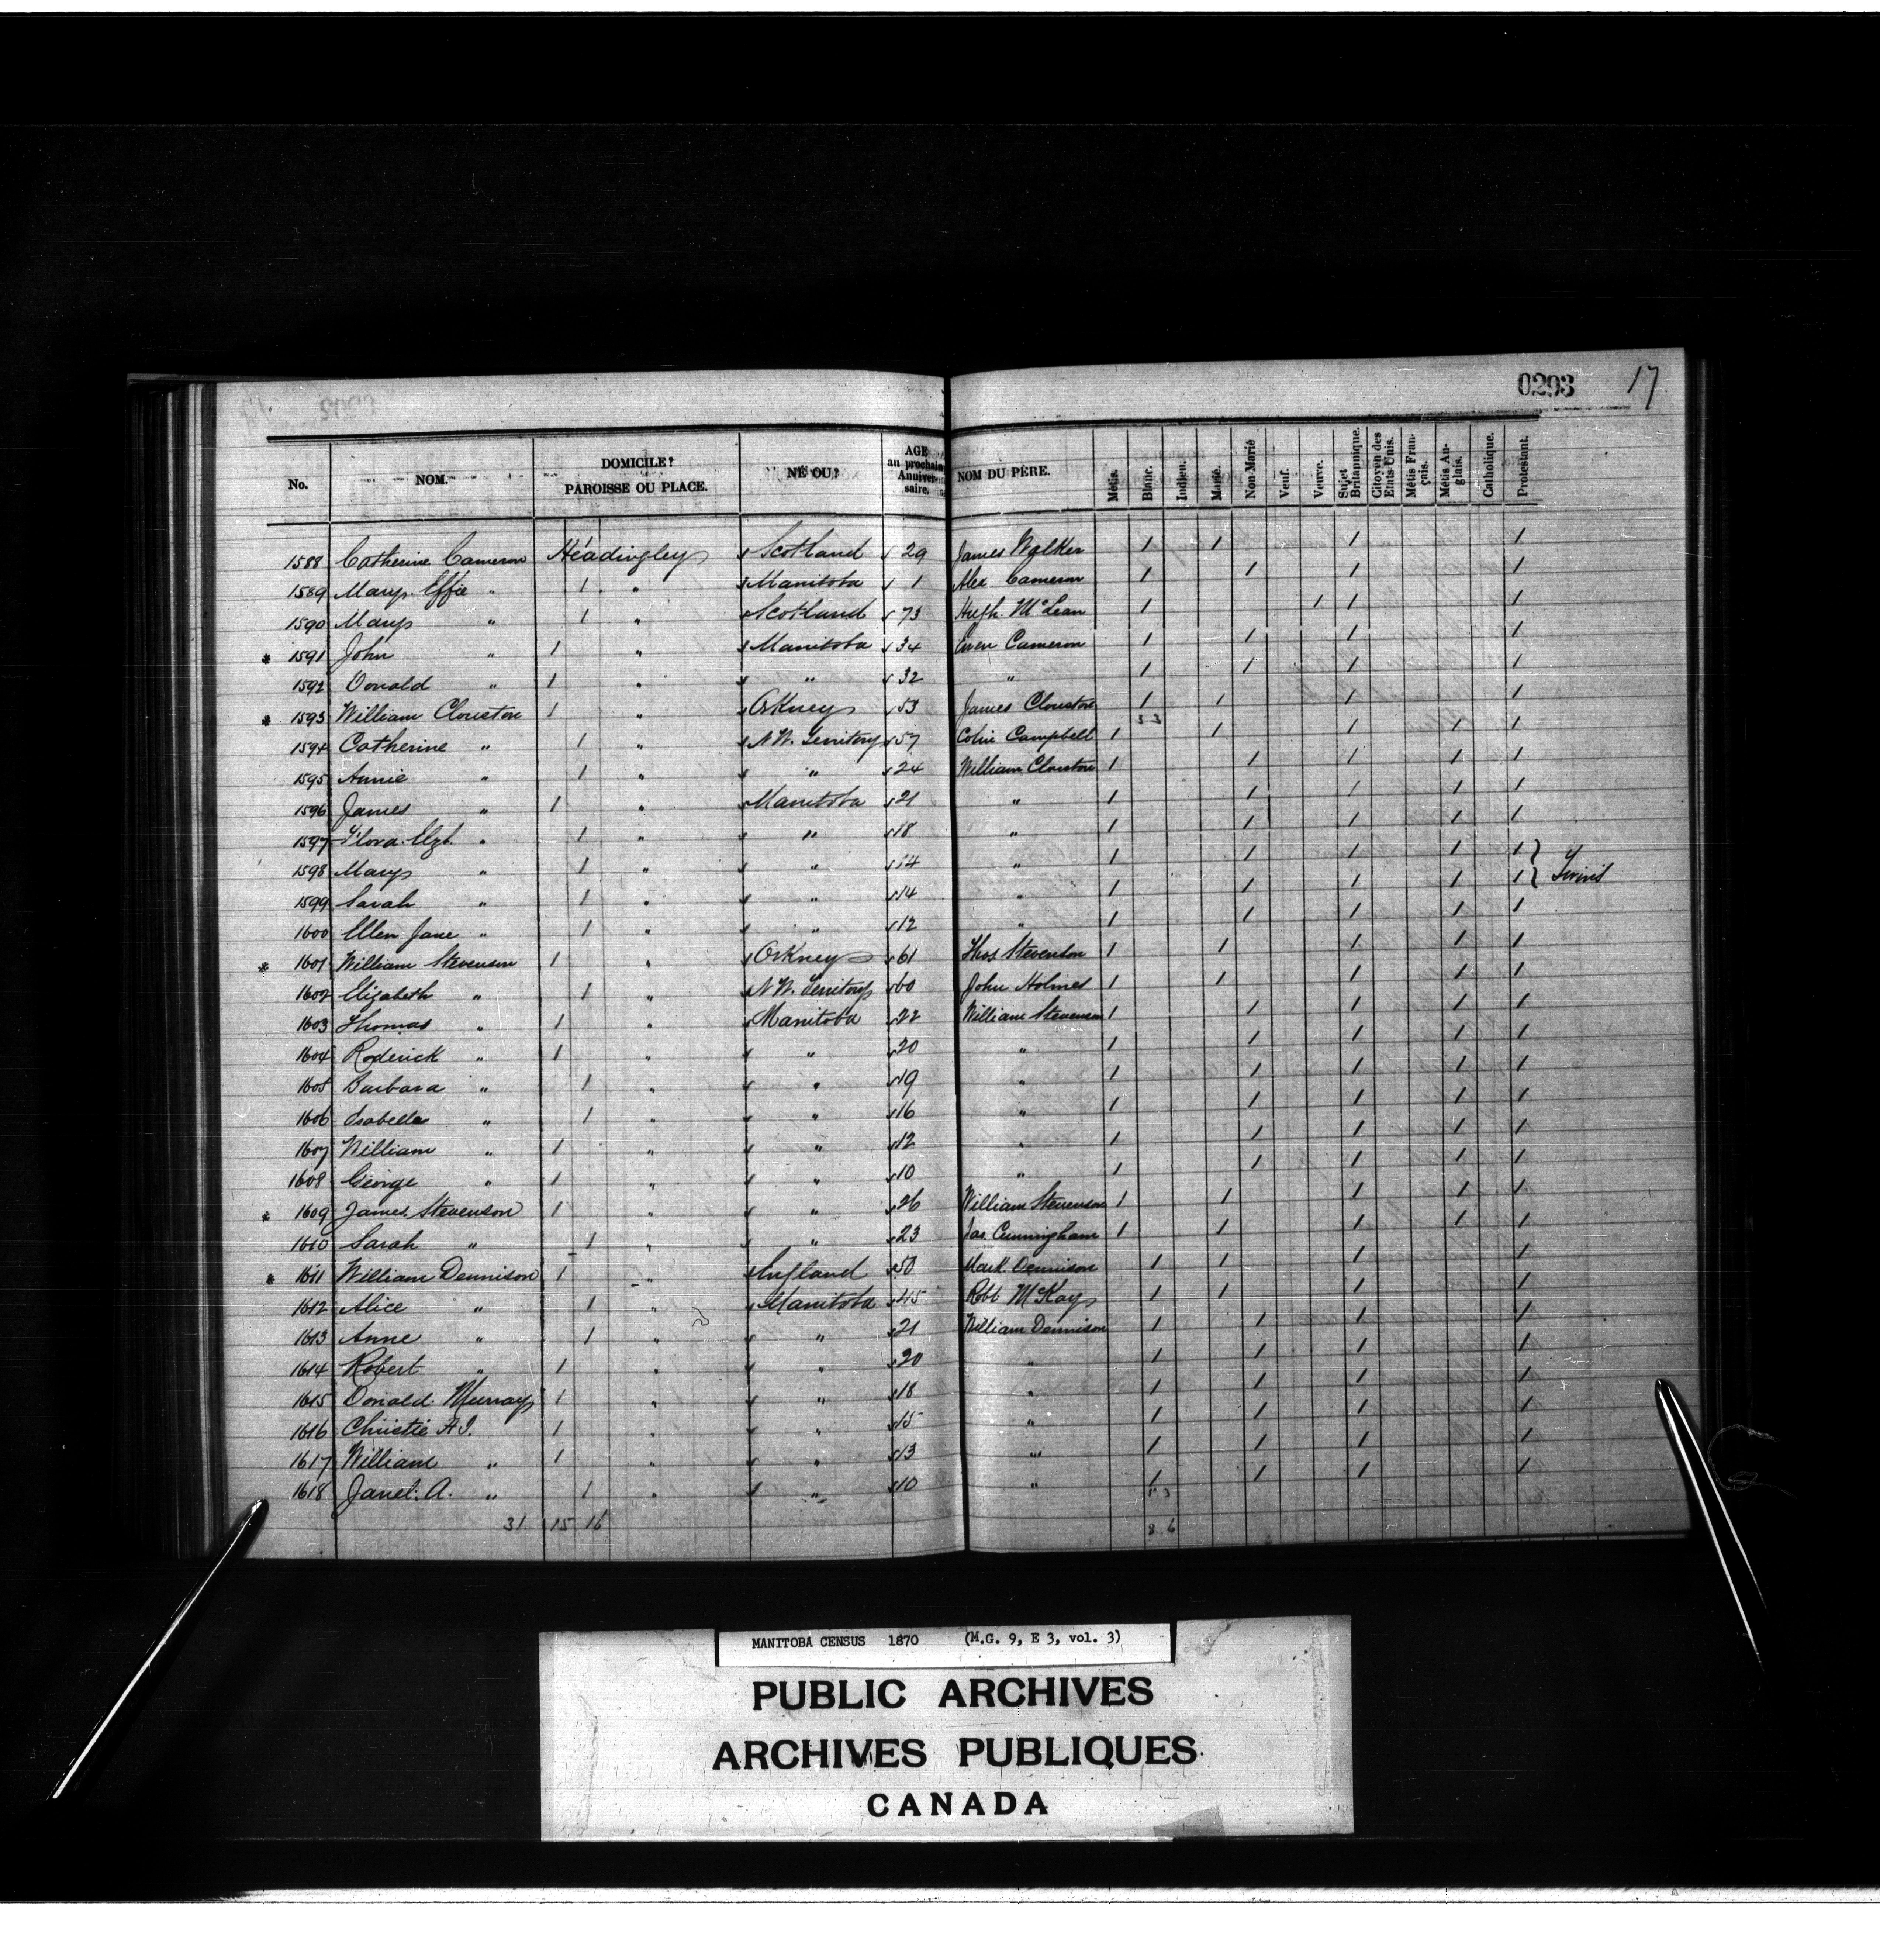 0293 17
No. NOM. DOMICILE? PAROISSE OU PLACE. NÉ OU? AGE au prochain Anniversaire. NOM DU PÈRE. Métis. Blanc. Indien. Marié. Non-Marié Veuf. Veuve. Sujet Britannique. Citoyen des Etats-Unis. Métis Français. Métis Anglais. Catholique. Protestant.
1588 Catherine Cameron Headingley Scotland 29 James Walker 1 1 1 1
1589 Mary Effie " 1 " Manitoba 1 Alex Cameron 1 1 1 1
1590 Mary " 1 " Scotland 73 Hugh McLean 1 1 1 1
* 1591 John " 1 " Manitoba 34 Ewen Cameron 1 1 1 1
1592 Donald " 1 " " 32 " 1 1 1 1
* 1593 William Clouston 1 " Orkney 53 James Clouston 1 1 1 1
1594 Catherine " 1 " N.W. Territory 57 Colin Campbell 1 1 1 1 1
1595 Annie " 1 " " 24 William Clouston 1 1 1 1 1
1596 James " 1 " Manitoba 21 " 1 1 1 1 1
1597 Flora Elzt. " 1 " " 18 " 1 1 1 1 1
1598 Mary " 1 " " 14 " 1 1 1 1 1 }
1599 Sarah " 1 " " 14 " 1 1 1 1 1 } Twins
1600 Ellen Jane " 1 " " 12 " 1 1 1 1 1
* 1601 William Stevenson 1 " Orkney 61 Thos Stevenson 1 1 1 1 1
1602 Elizabeth " 1 " N.W. Territory 60 John Holmes 1 1 1 1 1
1603 Thomas " 1 " Manitoba 22 William Stevenson 1 1 1 1 1
1604 Roderick " 1 " " 20 " 1 1 1 1 1
1605 Barbara " 1 " " 19 " 1 1 1 1 1
1606 Isabella " 1 " " 16 " 1 1 1 1 1
1607 William " 1 " " 12 " 1 1 1 1 1
1608 George " 1 " " 10 " 1 1 1 1 1
* 1609 James Stevenson 1 " " 26 William Stevenson 1 1 1 1 1
1610 Sarah " 1 " " 23 Jas. Cunningham 1 1 1 1 1
* 1611 William Dennison 1 " England 50 Mark Dennison 1 1 1 1
1612 Alice " 1 " Manitoba 45 Robt McKay 1 1 1 1
1613 Anne " 1 " " 21 William Dennison 1 1 1 1
1614 Robert " 1 " " 20 " 1 1 1 1
1615 Donald Murray 1 " " 18 " 1 1 1 1
1616 Christie A.J. 1 " " 15 " 1 1 1 1
1617 William " 1 " " 13 " 1 1 1 1
1618 Janet A. " 1 " " 10 " 1 1 1 1
31 15 16
MANITOBA CENSUS 1870 (M.G. 9, E 3, vol. 3)
PUBLIC ARCHIVES
ARCHIVES PUBLIQUES
CANADA